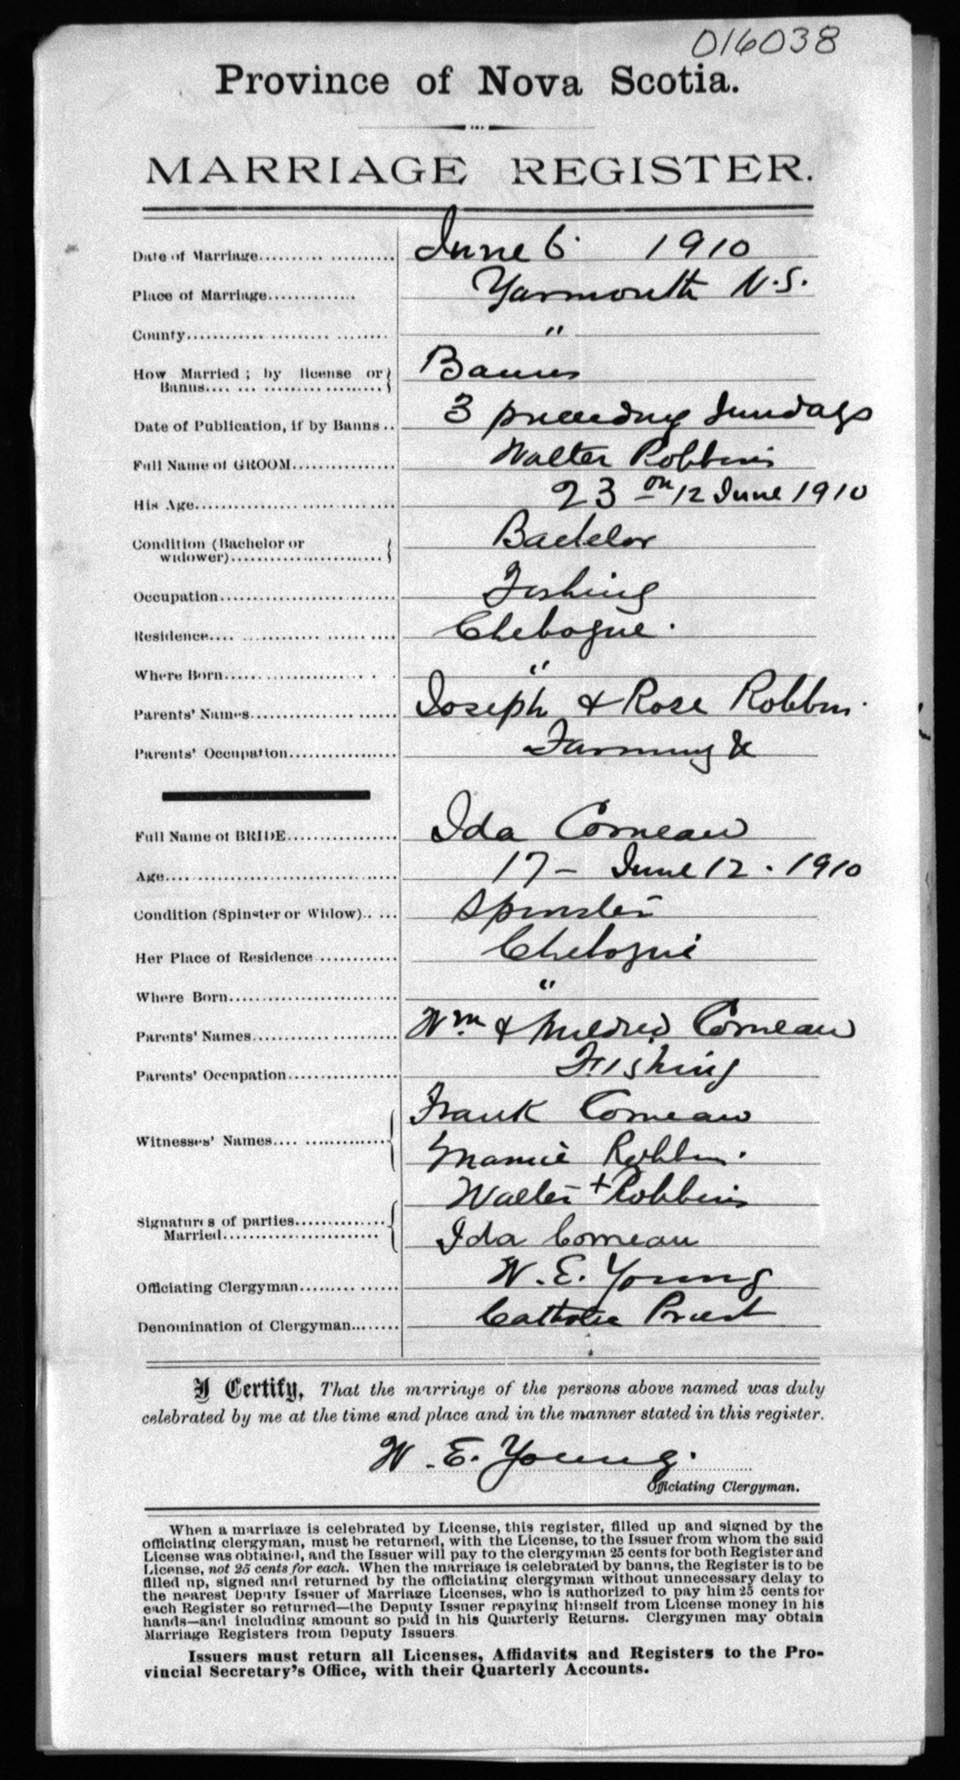 016038
Province of Nova Scotia.
MARRIAGE REGISTER.
Date of Marriage.......... ........... June 6. 1910
Place of Marriage.............. Yarmouth N.S.
County............ .......... ........ "
How Married ; by license or } Banns
Banns.... ... ............ .......... }
Date of Publication, if by Banns .. 3 preceding Sundays
Full Name of GROOM................ Walter Robbins
His Age.................. .... .... ... 23 on 12 June 1910
Condition (Bachelor or { Bachelor
widower)........................ {
Occupation........................... Fishing
Residence.... ............ ...... .... Chebogue.
Where Born...................... . . "
Parents' Names.............. ...... Joseph & Rose Robbins.
Parents' Occupation................. Farming &c
Full Name of BRIDE................. Ida Comeau
Age.... ............................ 17 - June 12. 1910
Condition (Spinster or Widow).. ... Spinster
Her Place of Residence ............ Chebogue
Where Born.......................... "
Parents' Names....................... Wm. & Mildred Comeau
Parents' Occupation................. Fishing
Frank Comeau
Witnesses' Names.... ............. {
Mamie Robbins.
Walter + Robbins
Signatures of parties.............. {
Married......................... { Ida Comeau
Officiating Clergyman......... ...... W. E. Young
Denomination of Clergyman........ Catholic Priest
I Certify, That the marriage of the persons above named was duly
celebrated by me at the time and place and in the manner stated in this register.
W. E. Young.
Officiating Clergyman.
When a marriage is celebrated by License, this register, filled up and signed by the
officiating clergyman, must be returned, with the License, to the Issuer from whom the said
License was obtained, and the Issuer will pay to the clergyman 25 cents for both Register and
License, not 25 cents for each. When the marriage is celebrated by banns, the Register is to be
filled up, signed and returned by the officiating clergyman without unnecessary delay to
the nearest Deputy Issuer of Marriage Licenses, who is authorized to pay him 25 cents for
each Register so returned—the Deputy Issuer repaying himself from License money in his
hands—and including amount so paid in his Quarterly Returns. Clergymen may obtain
Marriage Registers from Deputy Issuers
Issuers must return all Licenses, Affidavits and Registers to the Pro-
vincial Secretary's Office, with their Quarterly Accounts.